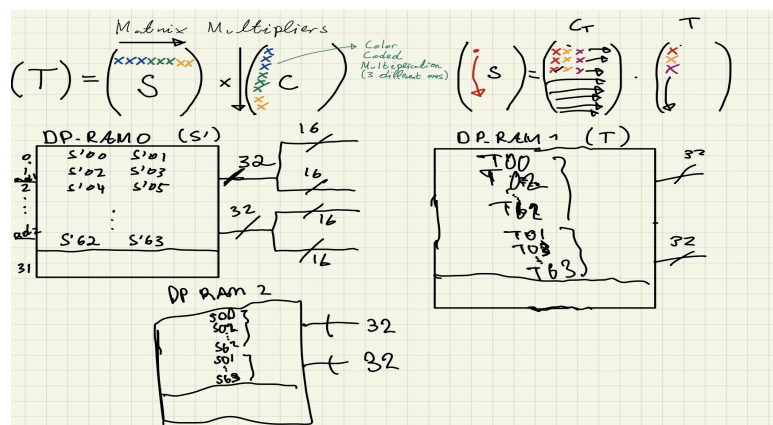 Matrix Multipliers
(T) = (xxxxxxxx S) × (xxxxxxxx C)
Color
Coded
Multiplication
(3 different ones)
CT T
(S) = (xxx xxx xxx) · (xxx)
DP-RAM0 (S')
0 S'00 S'01
1 S'02 S'03
2 S'04 S'05
S'62 S'63
31
32
16
16
32
16
16
DP-RAM1 (T)
T00
T02
T62
T01
T03
T63
32
32
DP RAM 2
S00
S02
S62
S01
S63
32
32